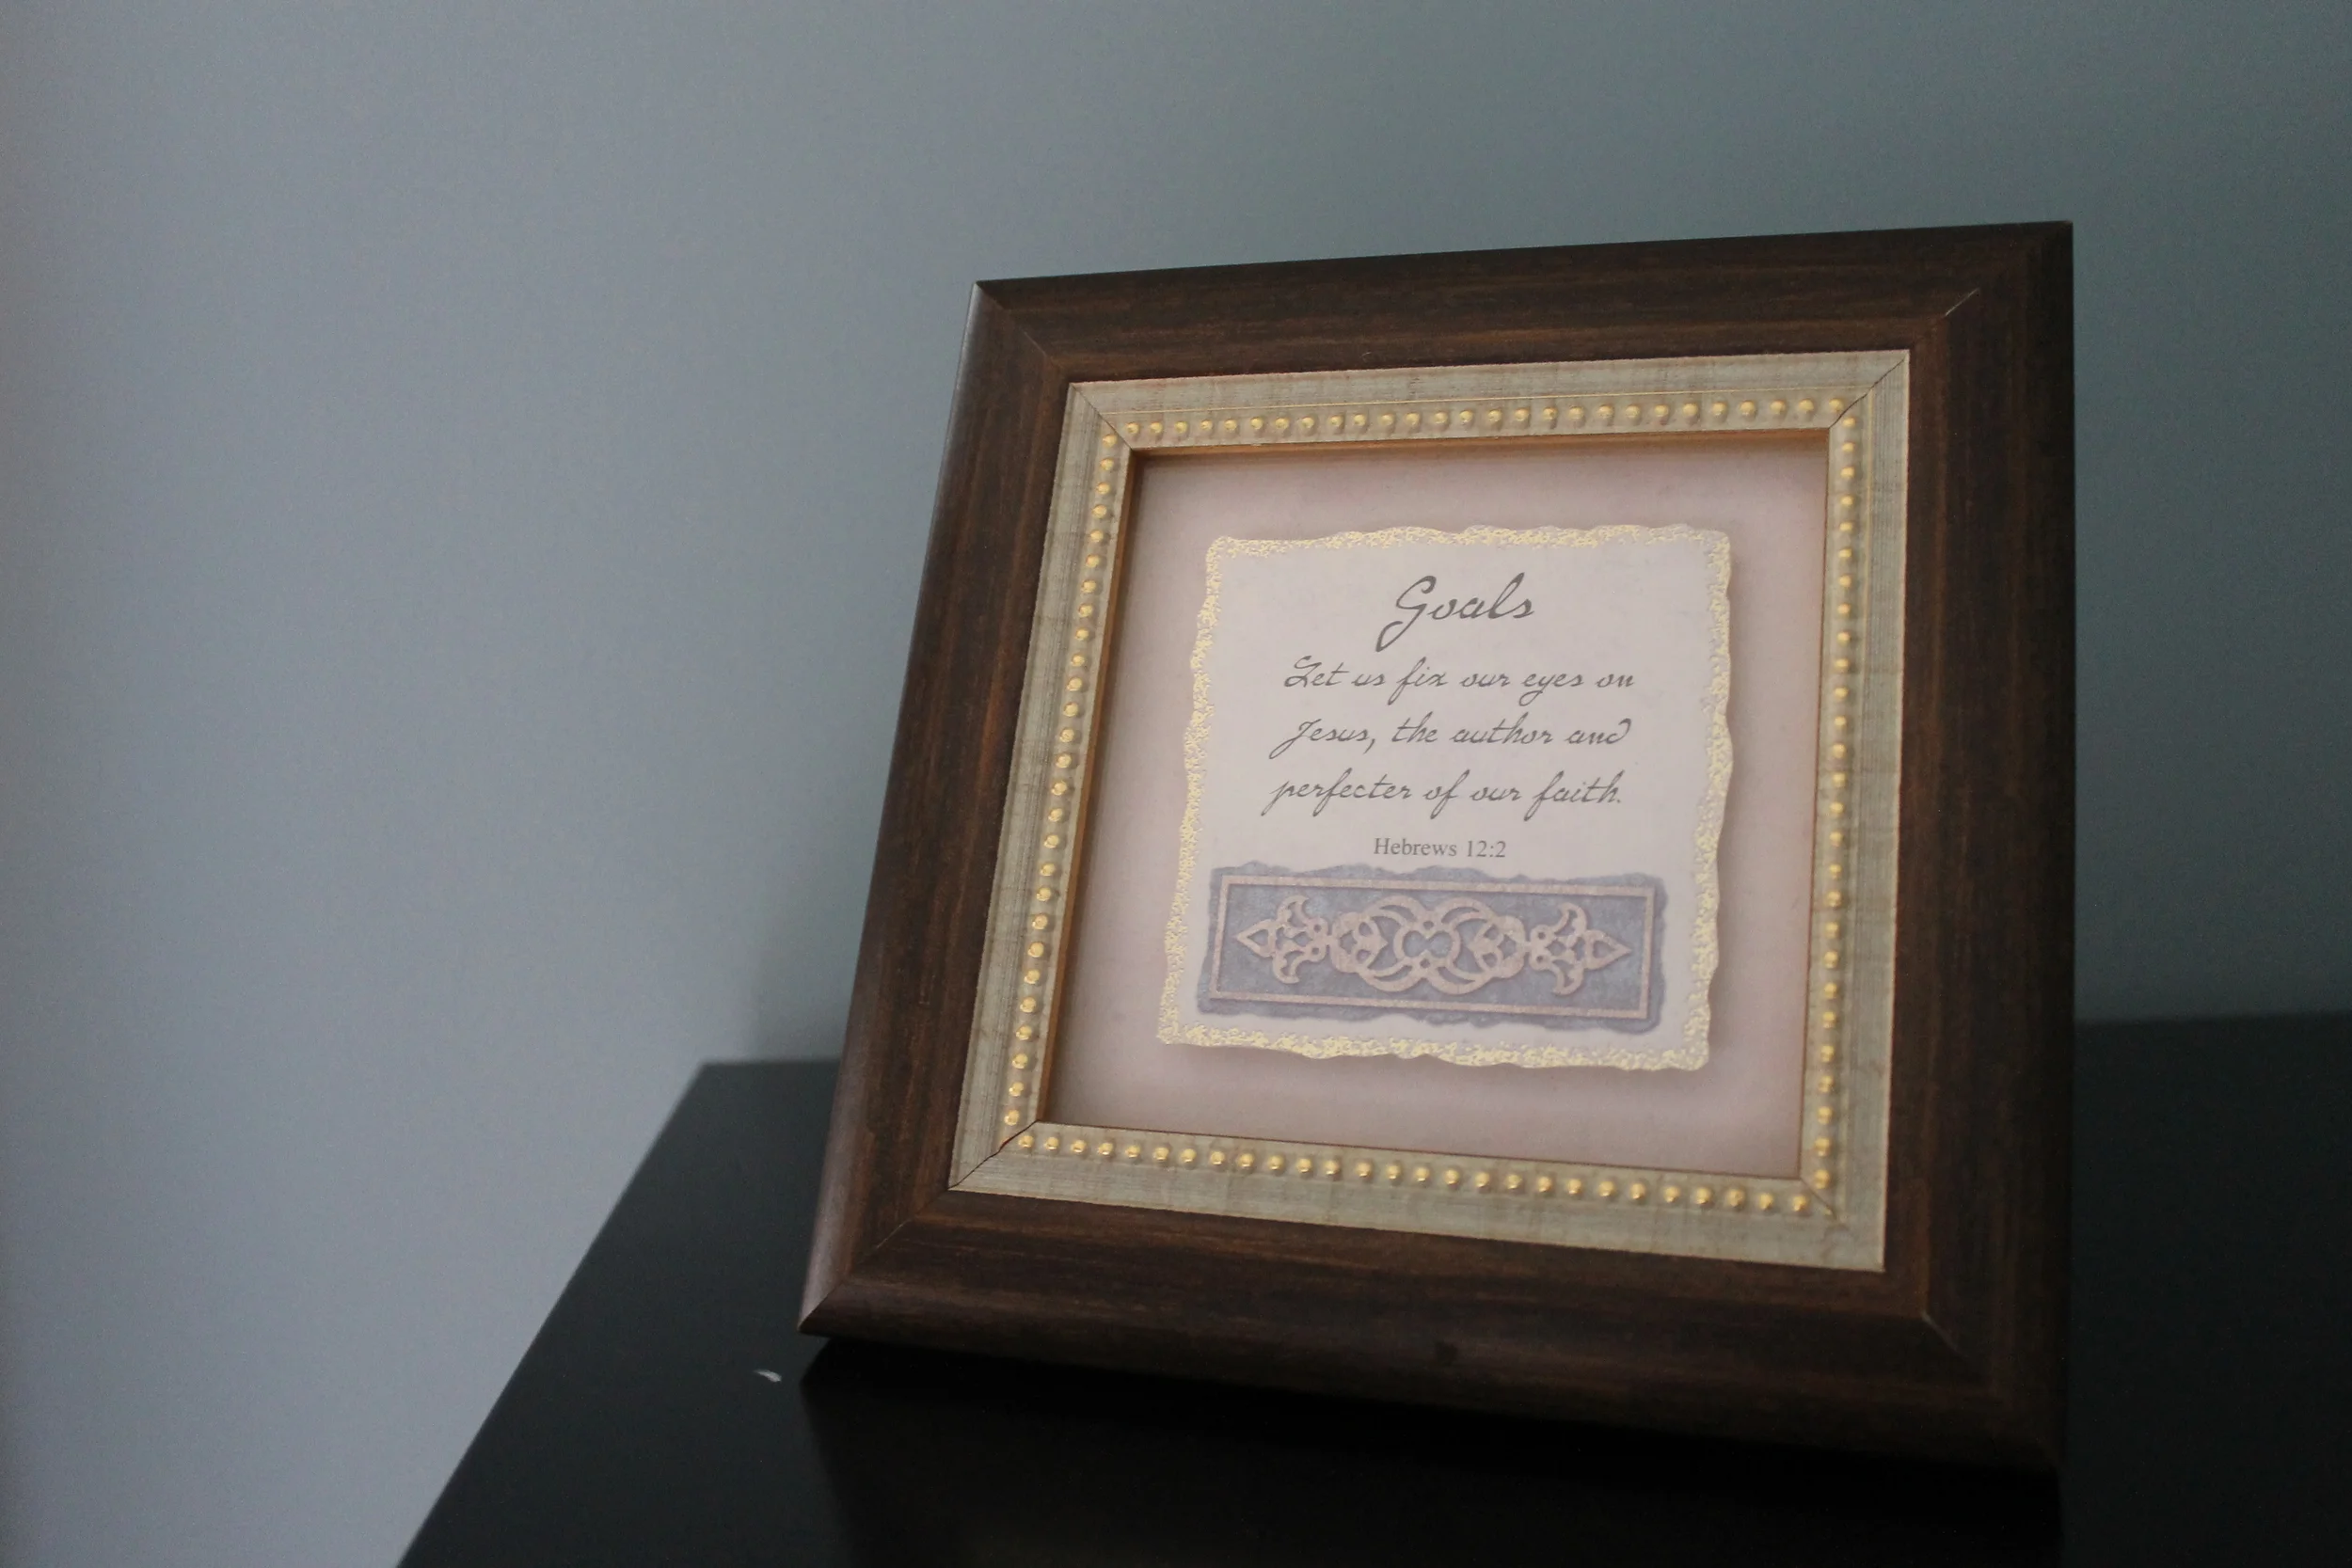 Goals
Let us fix our eyes on
Jesus, the author and
perfecter of our faith.
Hebrews 12:2